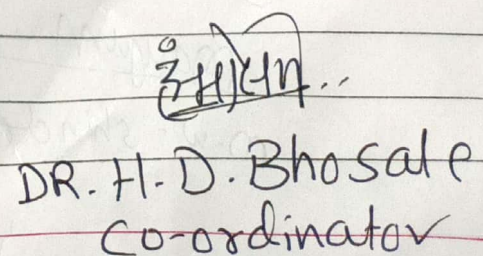 DR. H. D. Bhosale
Co-ordinator